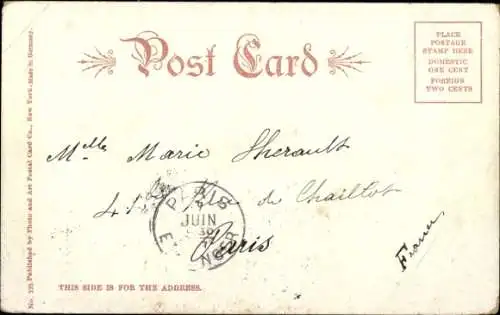 Post Card
PLACE
POSTAGE
STAMP HERE
DOMESTIC
ONE CENT
FOREIGN
TWO CENTS
Melle Marie Sherault
41 Rue de Chaillot
Paris
France
PARIS
JUIN
30
THIS SIDE IS FOR THE ADDRESS.
No. Published by Photo and Art Postal Card Co., New York. Made in Germany.